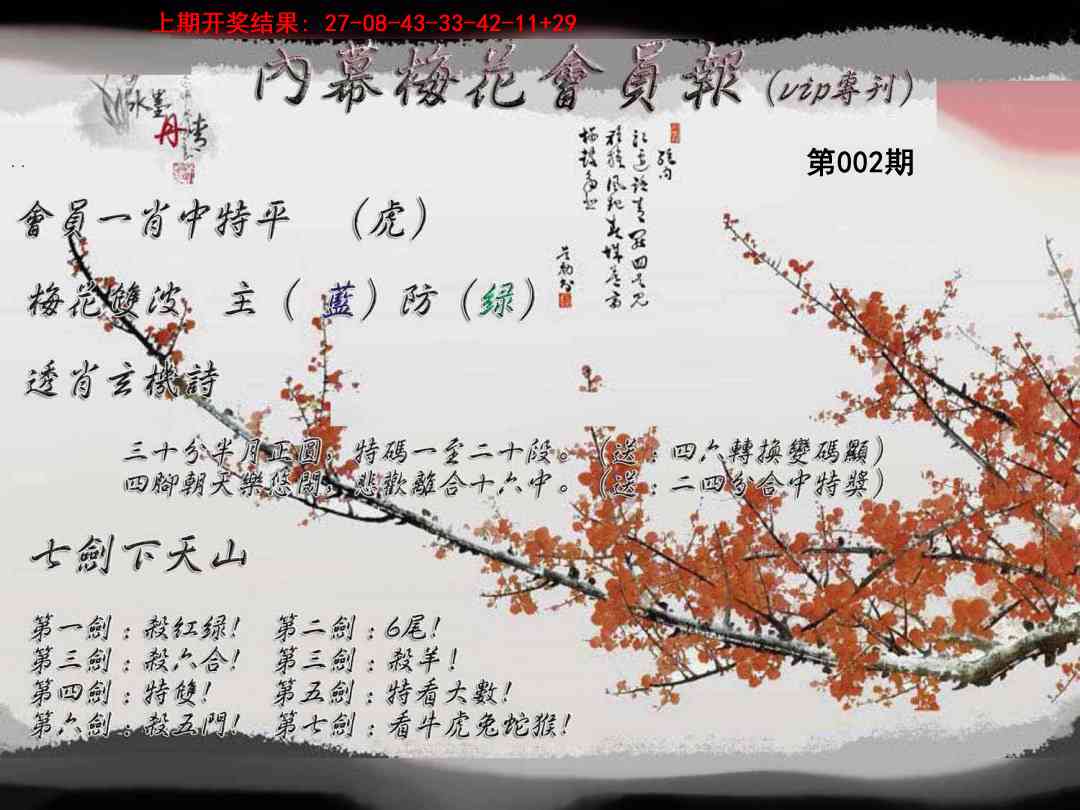 上期开奖结果: 27-08-43-33-42-11+29
內幕梅花會員報(vip專刊)
水墨丹青
第002期
會員一肖中特平 (虎)
梅花雙波 主(藍)防(綠)
透肖玄機詩
三十分半月正圓，特碼一至二十段。(送:四六轉換變碼顯)
四腳朝天樂悠閑，悲歡離合十六中。(送:二四分合中特獎)
七劍下天山
第一劍:殺紅綠! 第二劍:6尾!
第三劍:殺六合! 第三劍:殺羊!
第四劍:特雙! 第五劍:特看大數!
第六劍:殺五門! 第七劍:看牛虎兔蛇猴!